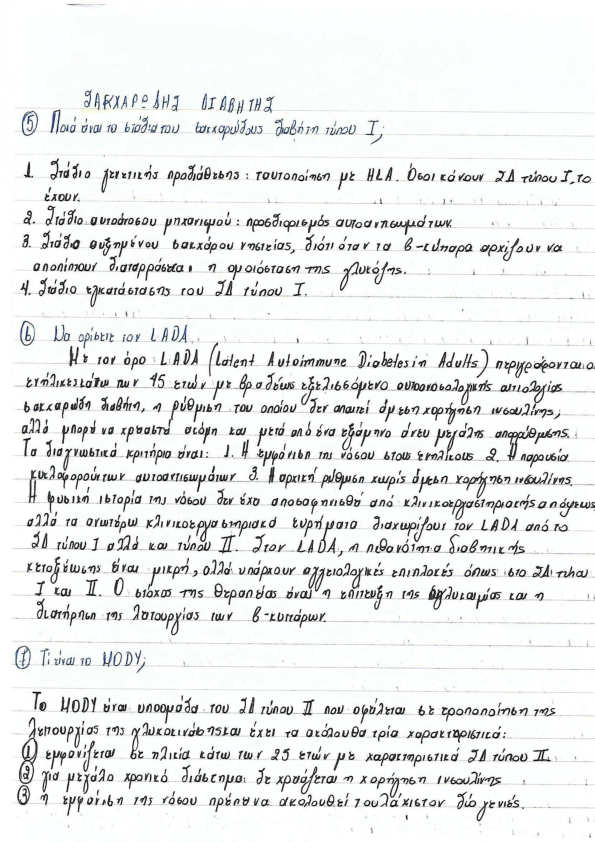 ΣΑΚΧΑΡΩΔΗΣ ΔΙΑΒΗΤΗΣ
⑤ Ποιά είναι τα στάδια του σακχαρώδους διαβήτη τύπου I;
1. Στάδιο γενετικής προδιάθεσης: ταυτοποίηση με HLA. Όσοι κάνουν ΣΔ τύπου I, το
έχουν.
2. Στάδιο αυτοάνοσου μηχανισμού: προσδιορισμός αυτοαντισωμάτων.
3. Στάδιο αυξημένου σακχάρου νηστείας, διότι όταν τα β-κύτταρα αρχίζουν να
αποπίπτουν διαταρράσσεται η ομοιόσταση της γλυκόζης.
4. Στάδιο εγκατάστασης του ΣΔ τύπου I.
⑥ Να ορίσετε τον LADA.
Με τον όρο LADA (Latent Autoimmune Diabetes in Adults) περιγράφονται οι
ενήλικες κάτω των 45 ετών με βραδέως εξελισσόμενο αυτοανοσολογικής αιτιολογίας
σακχαρώδη διαβήτη, η ρύθμιση του οποίου δεν απαιτεί άμεση χορήγηση ινσουλίνης,
αλλά μπορεί να χρειαστεί ακόμη και μετά από ένα εξάμηνο άνευ μεγάλης απορρύθμισης.
Τα διαγνωστικά κριτήρια είναι: 1. Η εμφάνιση της νόσου στους ενήλικους 2. Η παρουσία
κυκλοφορούντων αυτοαντισωμάτων 3. Η αρχική ρύθμιση χωρίς άμεση χορήγηση ινσουλίνης.
Η φυσική ιστορία της νόσου δεν έχει αποσαφηνισθεί από κλινικοεργαστηριακής απόψεως
αλλά τα ανωτέρω κλινικοεργαστηριακά ευρήματα διαχωρίζουν τον LADA από το
ΣΔ τύπου I αλλά και τύπου II. Στον LADA, η πιθανότητα διαβητικής
κετοξέωσης είναι μικρή, αλλά υπάρχουν αγγειολογικές επιπλοκές όπως στο ΣΔ τύπου
I και II. Ο στόχος της θεραπείας είναι η επίτευξη της ευγλυκαιμίας και η
διατήρηση της λειτουργίας των β-κυττάρων.
⑦ Τί είναι το MODY;
Το MODY είναι υποομάδα του ΣΔ τύπου II που οφείλεται σε τροποποίηση της
λειτουργίας της γλυκοκινάσης και έχει τα ακόλουθα τρία χαρακτηριστικά:
① εμφανίζεται σε ηλικία κάτω των 25 ετών με χαρακτηριστικά ΣΔ τύπου II.
② για μεγάλο χρονικό διάστημα δε χρειάζεται η χορήγηση ινσουλίνης
③ η εμφάνιση της νόσου πρέπει να ακολουθεί τουλάχιστον δύο γενιές.